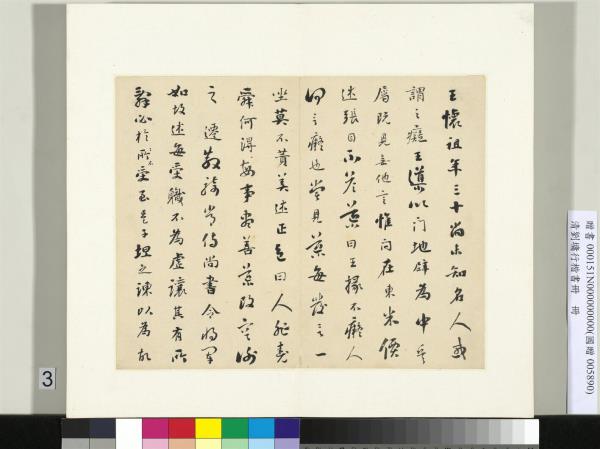 王懷祖年三十尚未知名人或
謂之癡王導以門地辟為中兵
屬既見無他言惟問在東米價
述張目不答導曰王掾不癡人
何言癡也嘗見導每發言一
坐莫不贊美述正色曰人非堯
舜何得每事盡善導改容謝
之遷散騎常侍尚書令將軍
如故述每受職不為虛讓其有所
辭必於所不受至是子坦之諫以為故
3
贈書 000151N000000000(國贈 005890)
清劉墉行楷書冊 冊